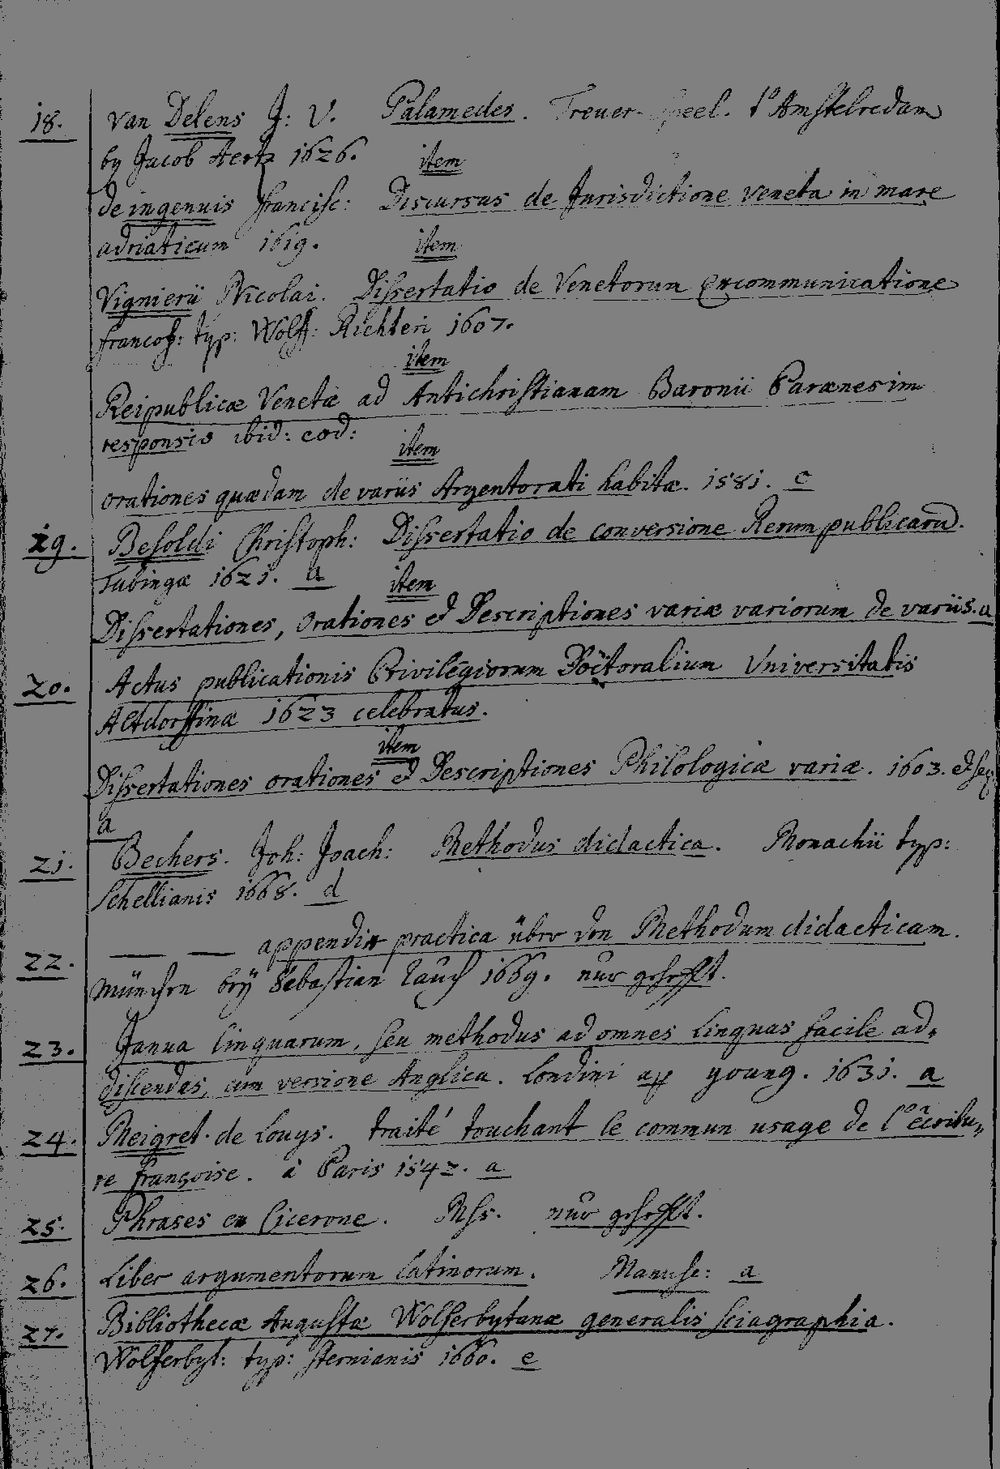 18. van Delens J: V. Palamedes. Treuer-speel. t'Amstelredam
by Jacob Aertz 1626. item
de ingenuis francisc: Discursus de Jurisdictione veneta in mare
adriaticum 1619. item
Vignierii Nicolai. Dissertatio de Venetorum excommunicatione
francof: typ: Wolff: Richteri 1607.
item
Reipublicæ Venetæ ad Antichristianam Baronii Parænesim
responsio ibid: eod:
item
orationes quædam de variis Argentorati habitæ. 1581. c
19. Besoldi Christoph: Dissertatio de conversione Rerum publicarū.
Tubingæ 1621. a item
Dissertationes, orationes et Descriptiones variæ variorum de variis. a
20. Actus publicationis Privilegiorum Doctoralium Universitatis
Altdorffinæ 1623 celebratus.
item
Dissertationes orationes et Descriptiones Philologicæ variæ. 1603. et seq:
a
21. Bechers. Joh: Joach: Methodus didactica. Monachii typ:
Schellianis 1668. d
22. — — appendix practica über den Methodum didacticam.
München beÿ Sebastian Rauch 1669. nur gehefft.
23. Janua linguarum, seu methodus ad omnes linguas facile ad-
discendas, cum versione Anglica. Londini ap young. 1631. a
24. Meigret. de Louys. traité touchant le commun usage de l'êcritu-
re françoise. à Paris 1542. a
25. Phrases ex Cicerone. Mss. nur gehefft.
26. Liber argumentorum latinorum. Manusc: a
27. Bibliothecæ Augustæ Wolferbytanæ generalis sciagraphia.
Wolferbyt: typ: sternianis 1660. e